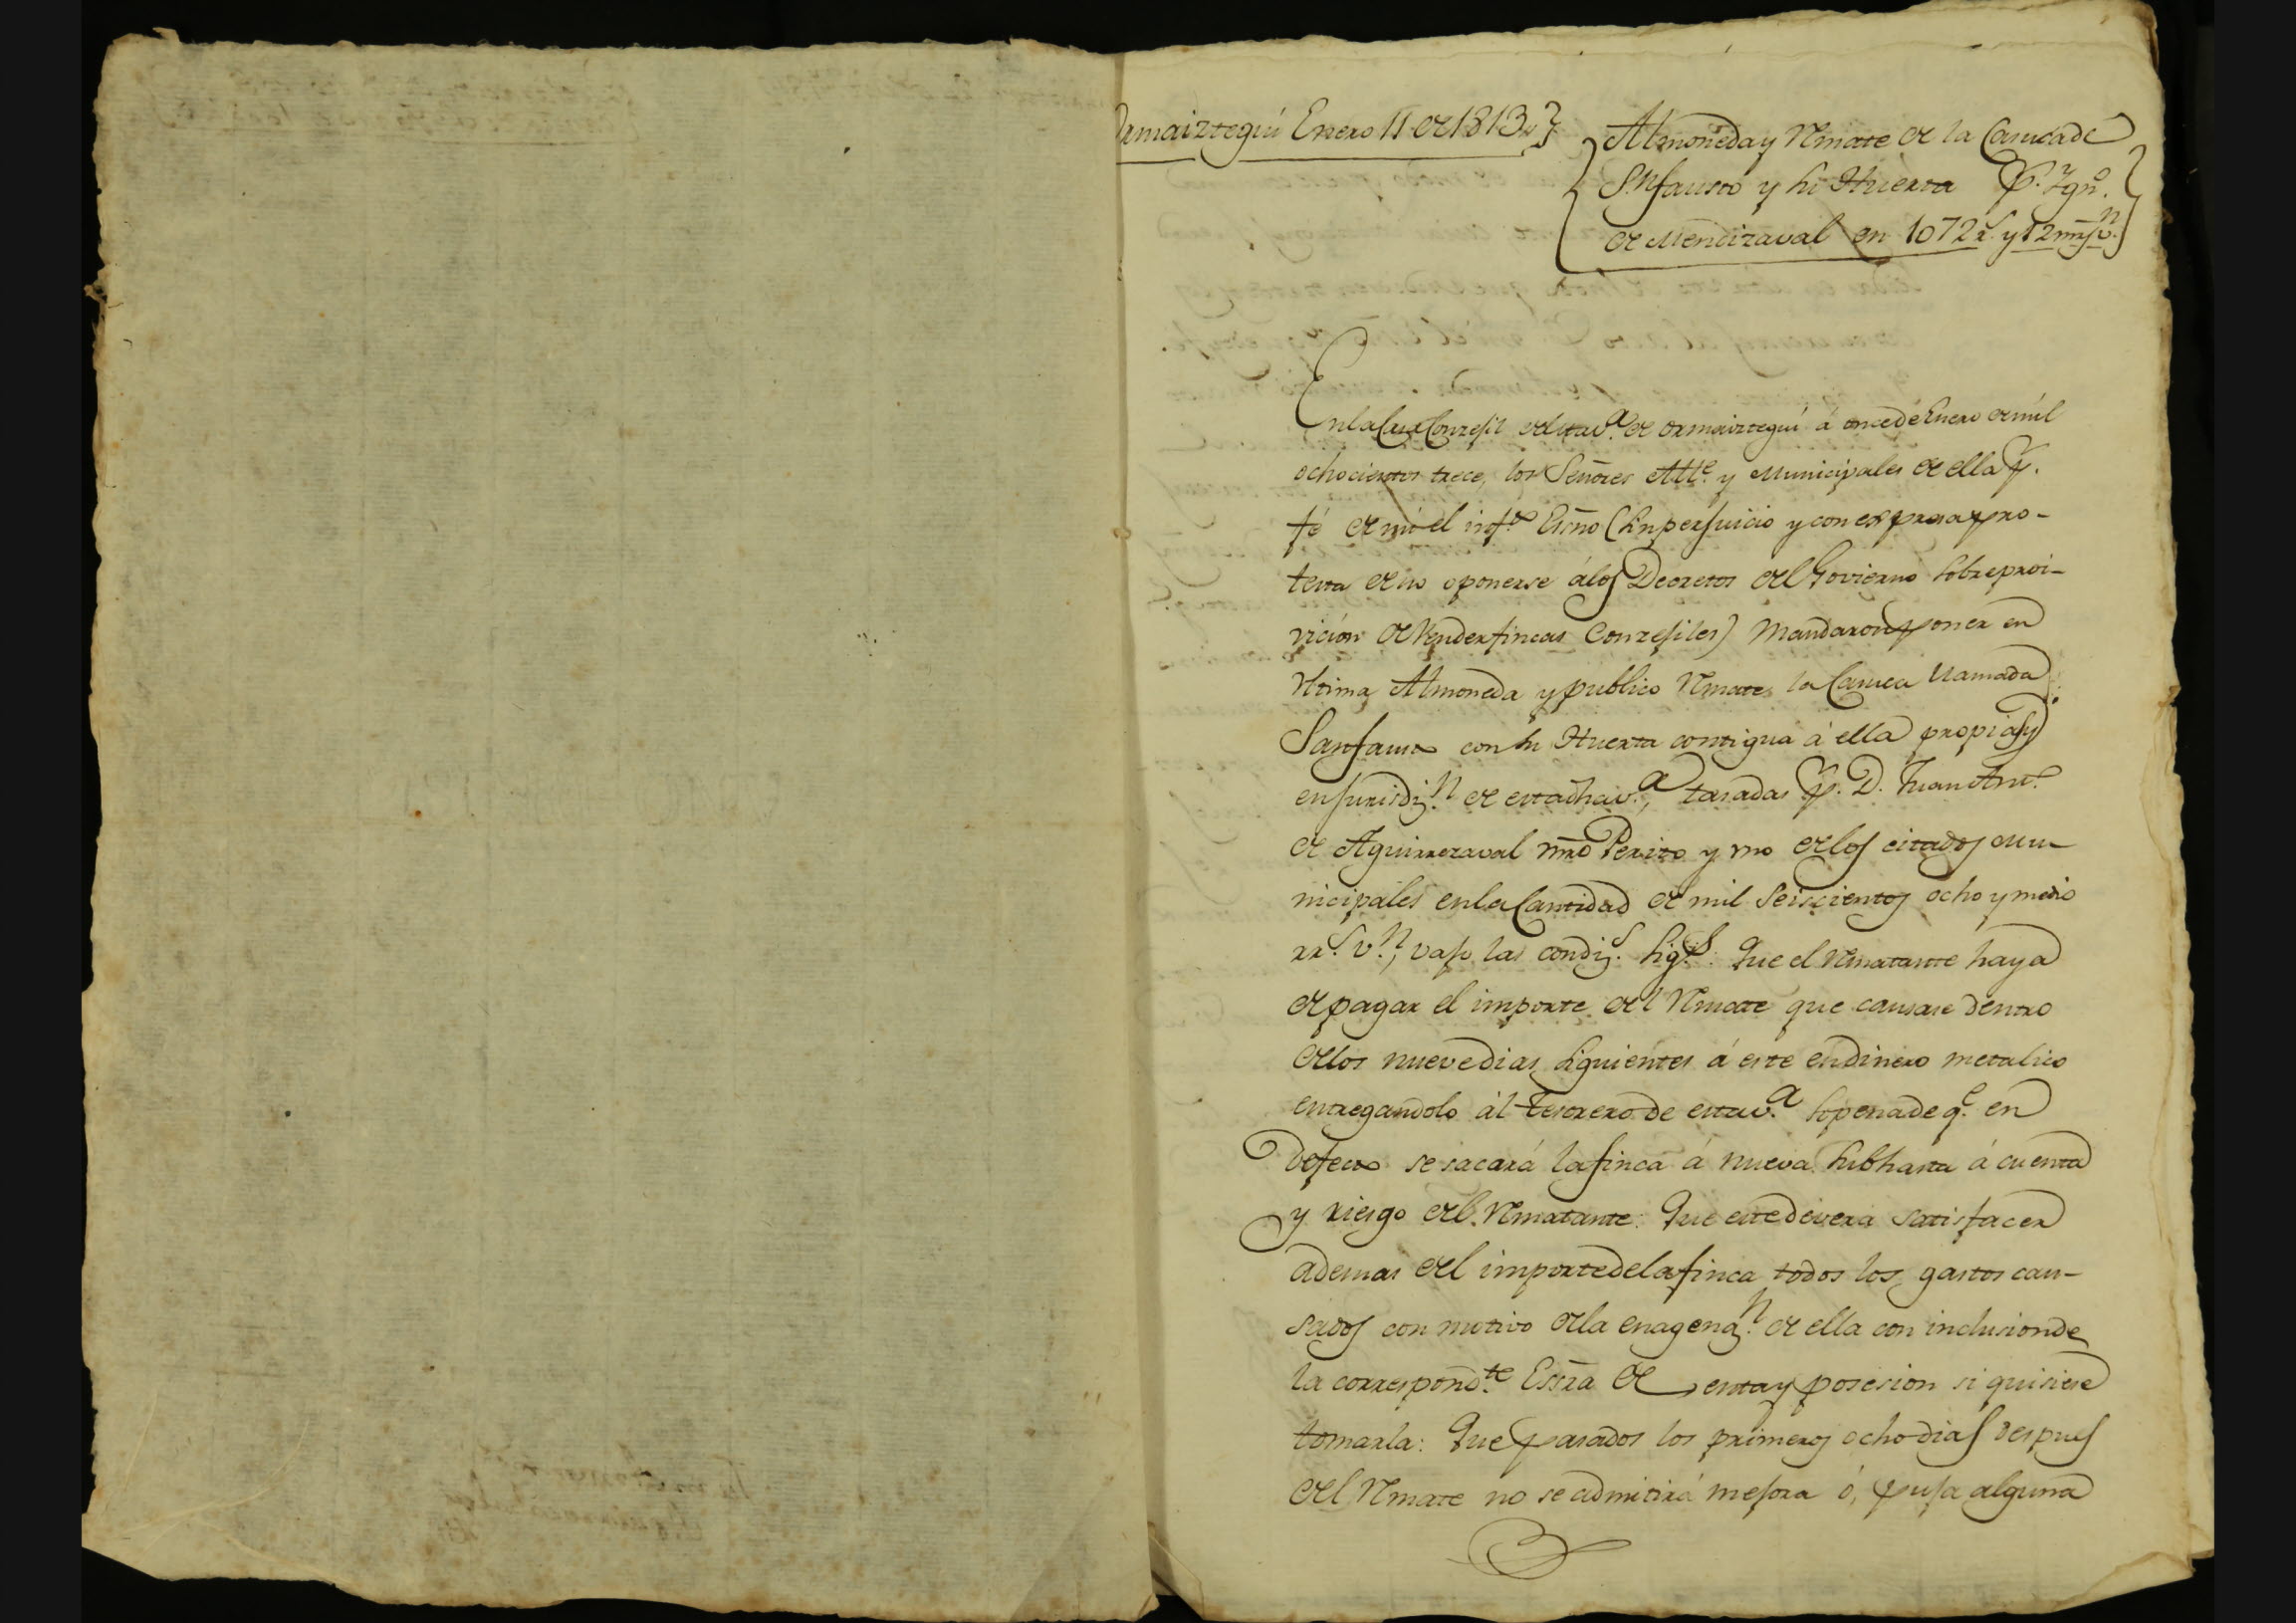 Ormaiztegui Enero 11 de 1813
Almoneda y Rmate de la Casuca de
Sn. fausto y su Huerta Pr. Ygno.
de Mendizaval en 1072 rs. y 12 mrs vn.
En la Casa Conzejil de esta va. de Ormaiztegui á once de Enero de mil
ochocientos trece, los Señores Alle. y Municipales de ella pr.
fé de mi el infto. Essno (sin perjuicio y con expresa pro-
testa de no oponerse á los Decretos del Govierno sobre proi-
vición de vender fincas Conzejiles) mandaron poner en
ultima Almoneda y publico Rmate la Casuca llamada
Sanfausto con su Huerta contigua á ella propias y
en jurisdizn. de esta dha va., tasadas pr. D. Juan Anto.
de Aguirrezaval mro Perito y uno de los citados mu-
nicipales en la Cantidad de mil seiscientos ocho y medio
rrs. vn., vajo las condizs. sigtes. Que el Rmatante haya
de pagar el importe del Rmate que causare dentro
de los nueve dias siguientes á este en dinero metalico
entregandolo ál tesorero de esta va. so pena de qe. en
defecto se sacará la finca á nueva subhasta á cuenta
y riesgo del Rmatante: Que este devera satisfacer
ademas del importe de la finca todos los gastos cau-
sados con motivo de la enagenazn. de ella con inclusion de
la correspondte. Essra de venta y posesion si quisiese
tomarla: Que pasados los primeros ocho dias despues
del Rmate no se admitirá mejora ó, puja alguna